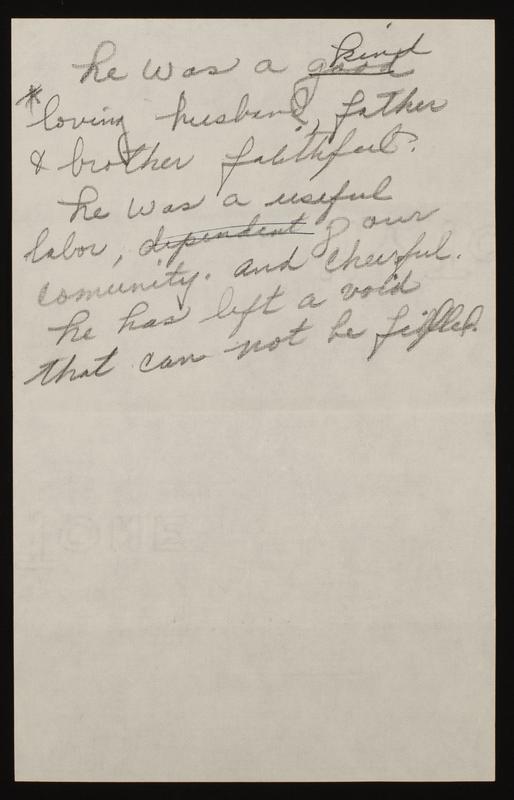 kind
he was a good
* loving husband, father
& brother faithful.
he was a useful
labor, dependent of our
comunity. and cheerful.
he has left a void
that can not be filled.